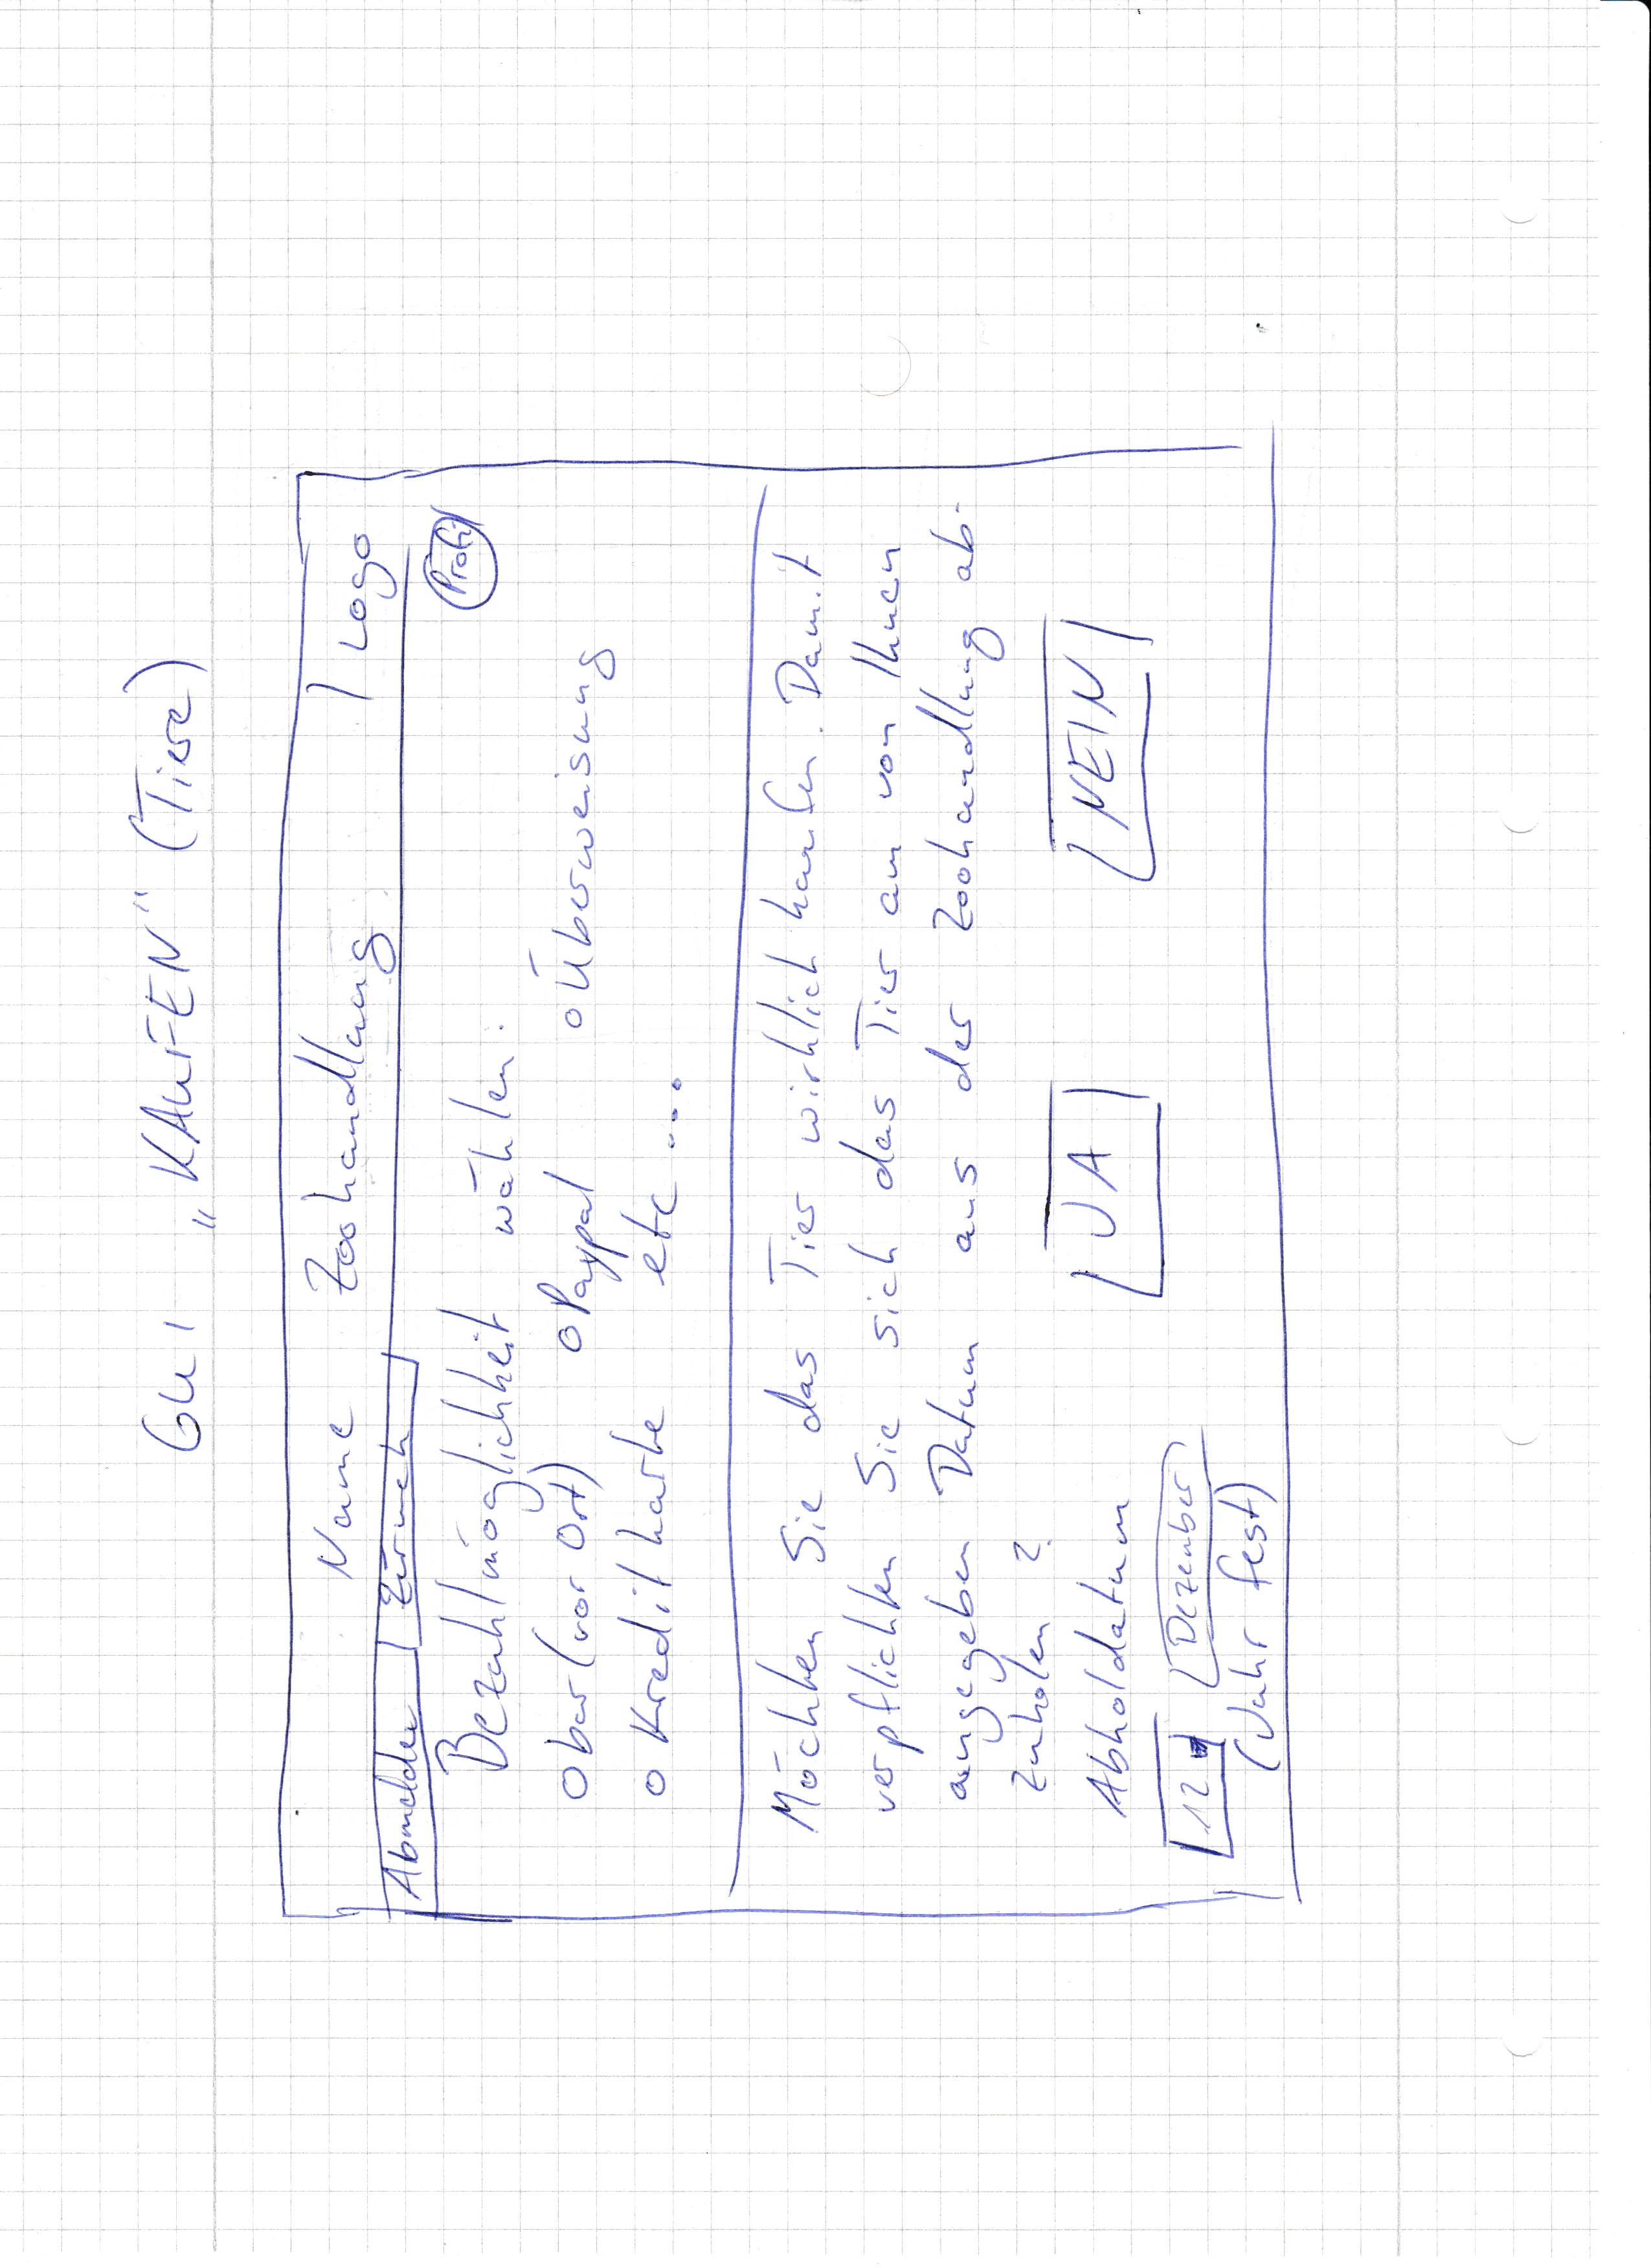 GUI „KAUFEN" (Tiere)
Name Zoohandlung | Logo
Abmelden Zurück
Profil
Bezahlmöglichkeit wählen:
o bar (vor Ort) o Paypal o Überweisung
o Kreditkarte etc....
Möchten Sie das Tier wirklich kaufen. Damit
verpflichten Sie sich das Tier am von Ihnen
angegeben Datum aus der Zoohandlung ab-
zuholen?
Abholdatum
JA NEIN
12 Dezember
(Jahr fest)